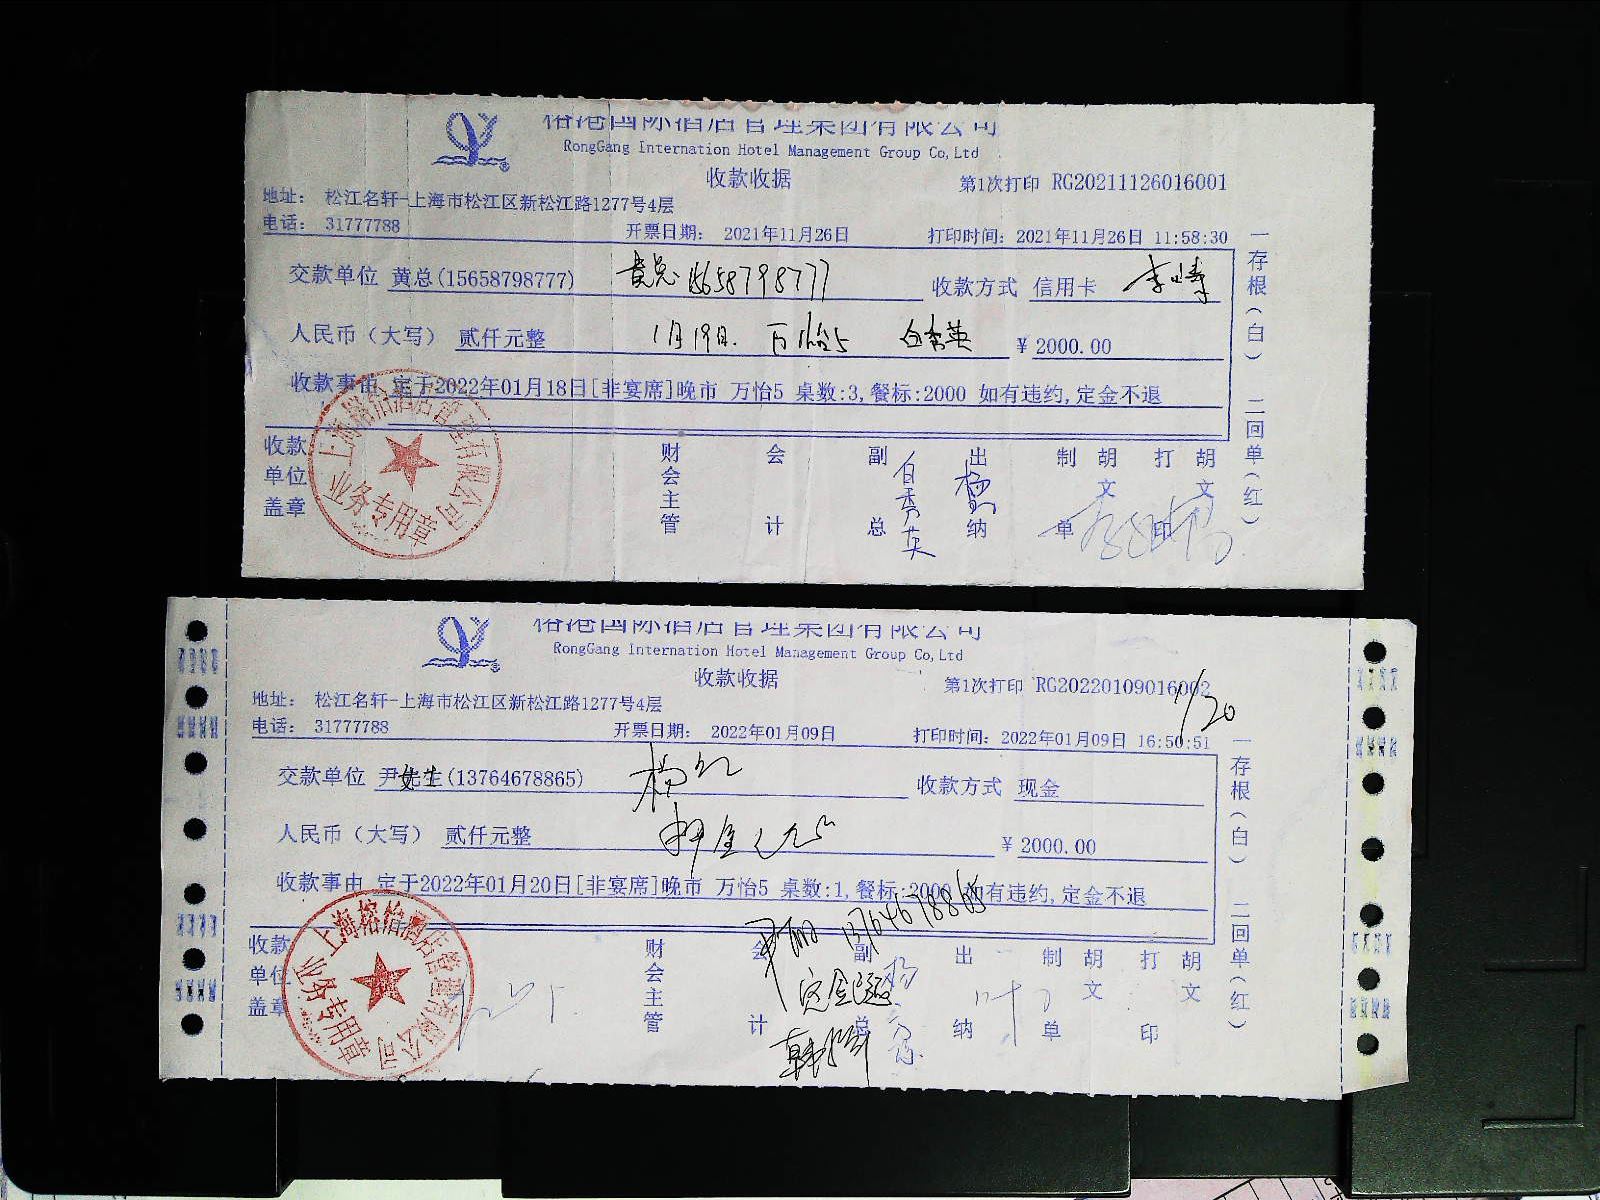 榕港国际酒店管理集团有限公司
RongGang Internation Hotel Management Group Co,Ltd
收款收据
第1次打印 RG20211126016001
地址： 松江名轩-上海市松江区新松江路1277号4层
电话： 31777788
开票日期： 2021年11月26日
打印时间：2021年11月26日 11:58:30
交款单位 黄总(15658798777)
黄总 15658798777
收款方式 信用卡
人民币（大写） 贰仟元整
1月19日. 万怡5 白秀英
¥ 2000.00
收款事由 定于2022年01月18日[非宴席]晚市 万怡5 桌数:3,餐标:2000 如有违约,定金不退
收款单位盖章
财会主管
会计
副总
白秀英
出纳
制单
胡文
打印
胡文
一存根（白） 二回单（红）
业务专用章
榕港国际酒店管理集团有限公司
RongGang Internation Hotel Management Group Co,Ltd
收款收据
第1次打印 RG20220109016002
1/20
地址： 松江名轩-上海市松江区新松江路1277号4层
电话： 31777788
开票日期： 2022年01月09日
打印时间：2022年01月09日 16:50:51
交款单位 尹先生(13764678865)
收款方式 现金
人民币（大写） 贰仟元整
¥ 2000.00
收款事由 定于2022年01月20日[非宴席]晚市 万怡5 桌数:1,餐标:2000 如有违约,定金不退
13764678865
收款单位盖章
财会主管
会计
副总
出纳
制单
胡文
打印
胡文
一存根（白） 二回单（红）
业务专用章